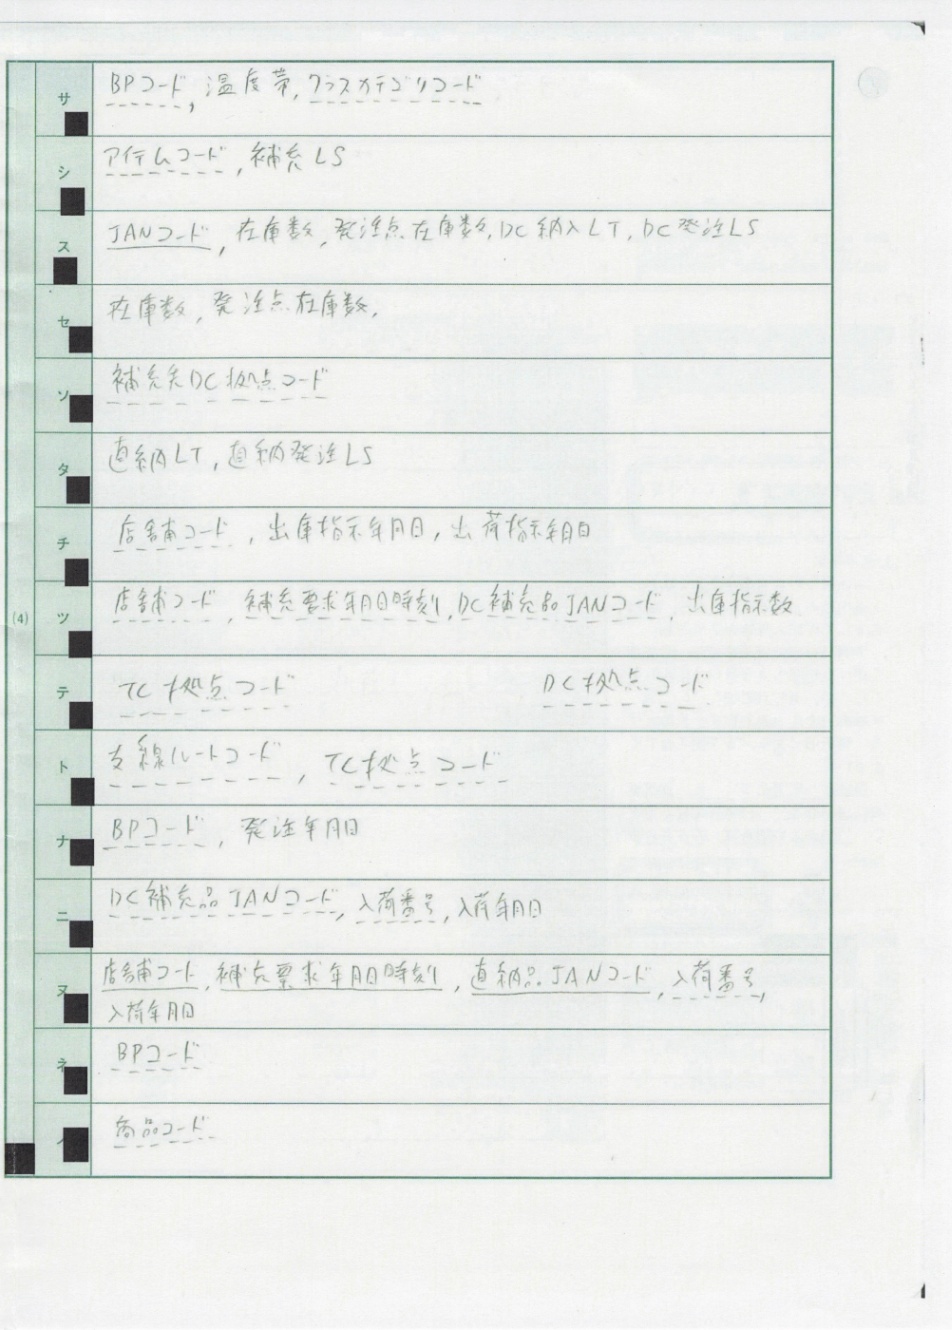 サ BPコード, 温度帯, クラスカテゴリコード
シ アイテムコード, 補充LS
ス JANコード, 在庫数, 発注点在庫数, DC納入LT, DC発注LS
セ 在庫数, 発注点在庫数,
ソ 補充先DC拠点コード
タ 直納LT, 直納発注LS
チ 店舗コード, 出庫指示年月日, 出荷指示年月日
(4) ツ 店舗コード, 補充要求年月日時刻, DC補充品JANコード, 出庫指示数
テ TC拠点コード DC拠点コード
ト 支線ルートコード, TC拠点コード
ナ BPコード, 発注年月日
ニ DC補充品JANコード, 入荷番号, 入荷年月日
ヌ 店舗コード, 補充要求年月日時刻, 直納品JANコード, 入荷番号,
入荷年月日
ネ BPコード
ノ 商品コード